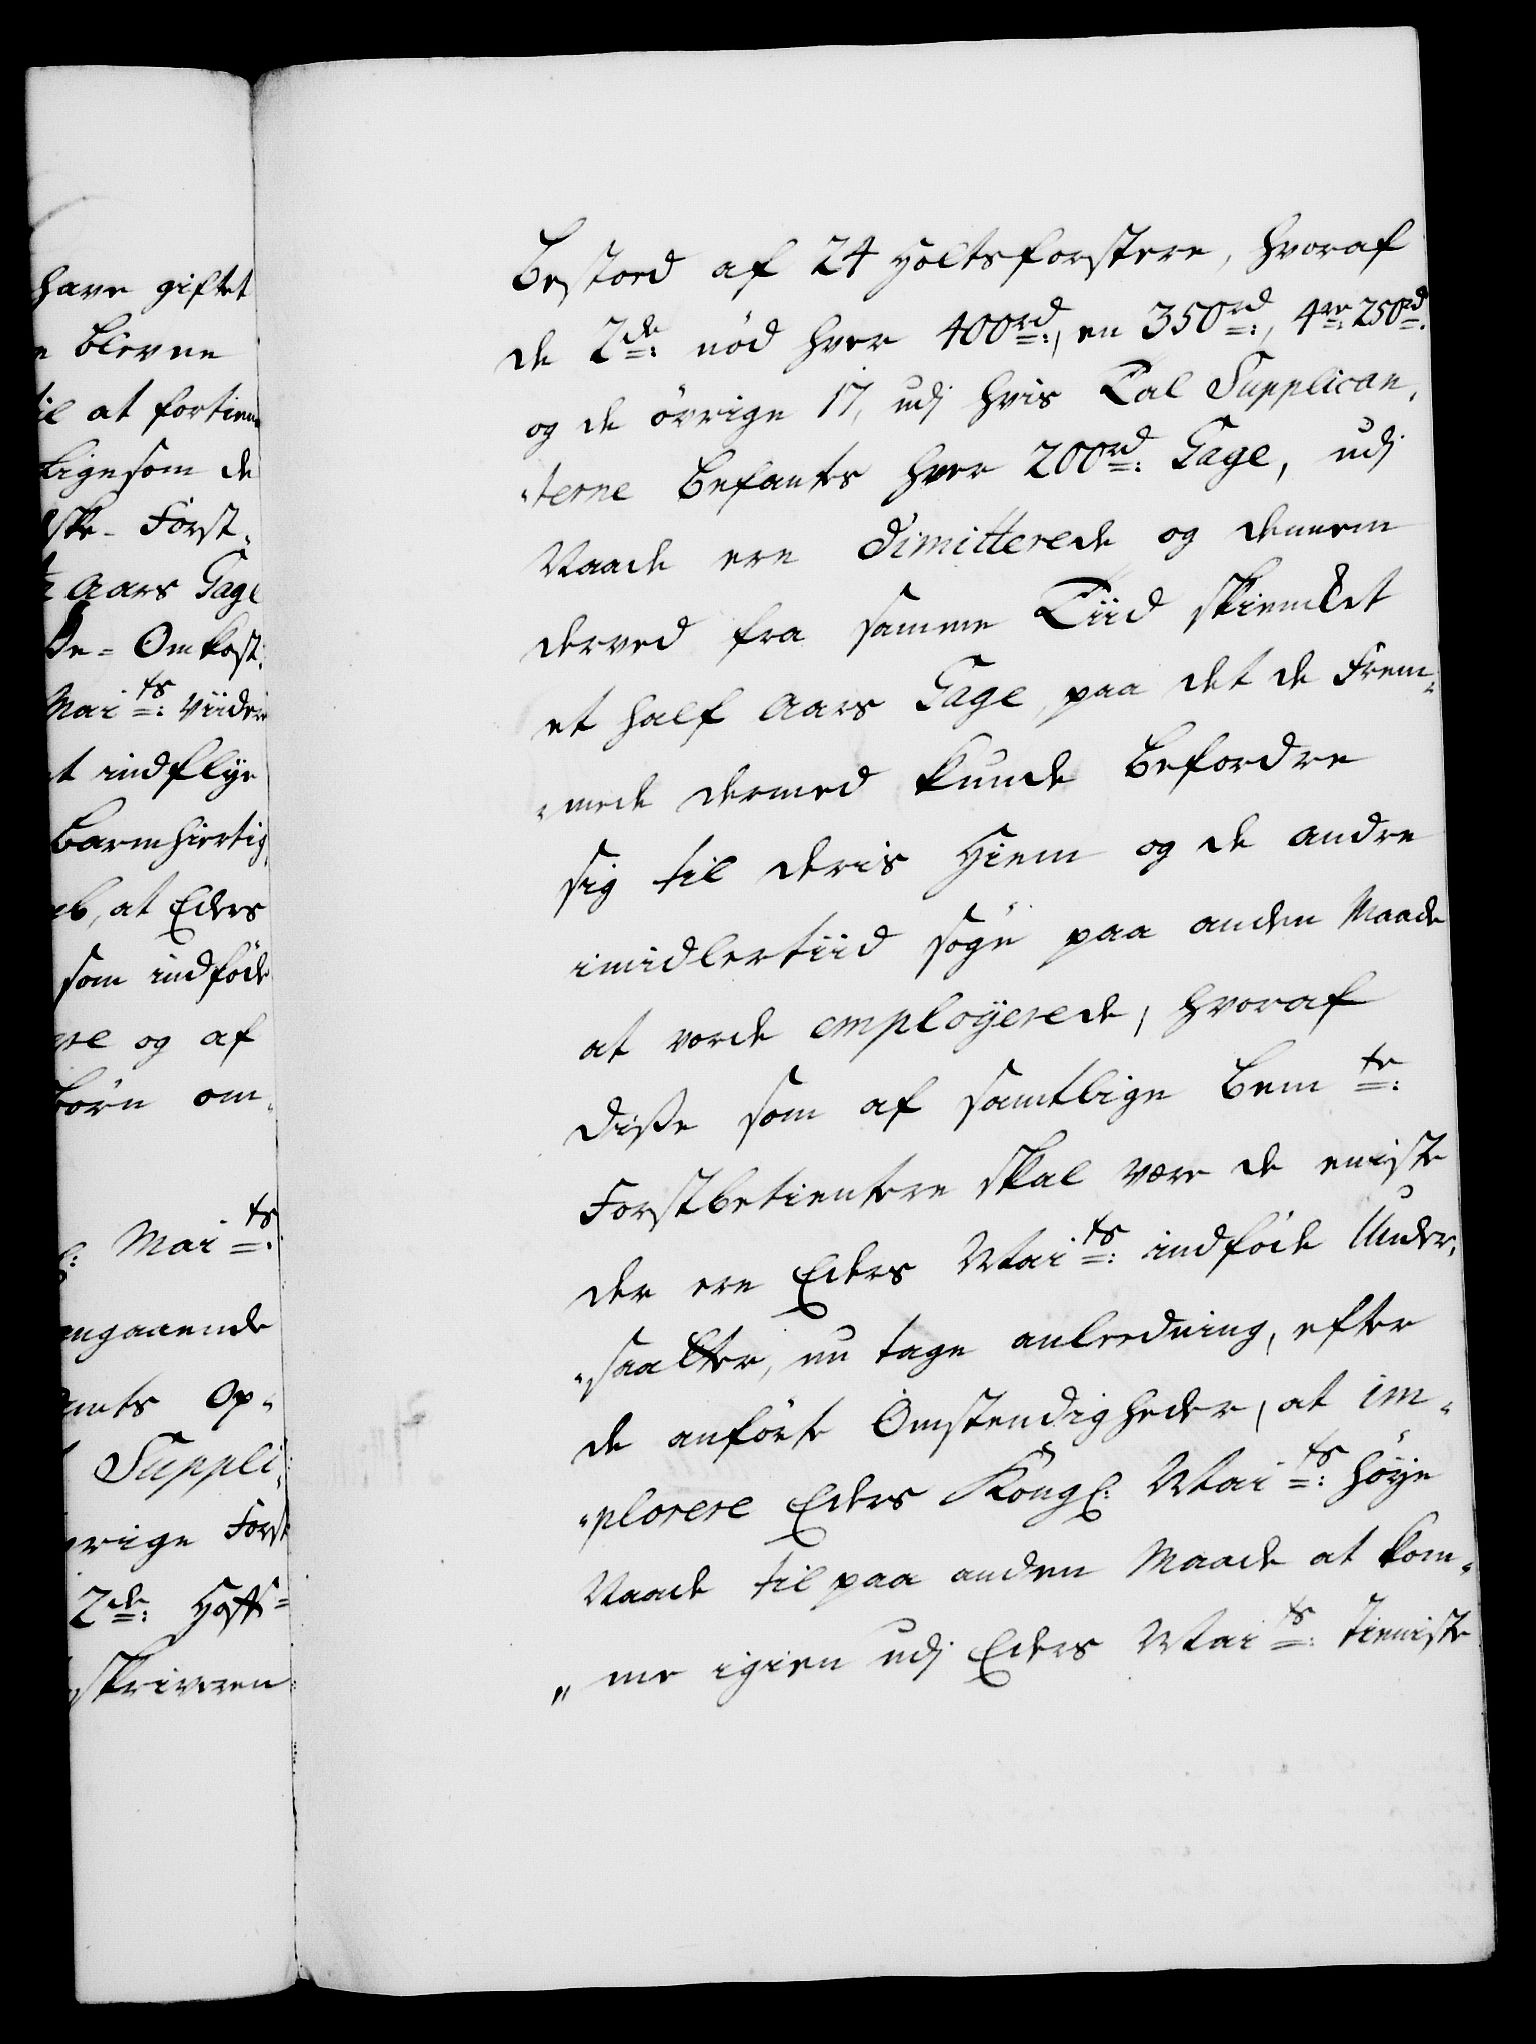 have giftet
blevne
til at fortiene
ligesom de
ske-Forst-
Aars Gage
De-Omkost:
Mai ts: Viidere
indflÿe
barmhiertig
at Eders
som indföde
og af
börn om-
Mai ts:
angaaende
Op-
Suppli-
Forst
2de: Hoff-
skriveren
Bestoed af 24 Holtsforstere, hvoraf
de 2de: nöd hver 400rd:, en 350rd:, 4re: 250rd:
og de övrige 17, udj hvis Tal Supplican-
-terne befantes hver 200rd: Gage, udj
Naade ere dimitterede og dennem
derved fra samme Tiid skienket
et half Aars Gage, paa det de Frem-
-mede dermed kunde befordre
sig til deris Hiem og de andre
imidlertiid søge paa anden Maade
at vorde emploÿerede, hvoraf
disse som af samtlige bem te:
Forstbetientere skal være de eniste
der ere Eders Mai ts: indföde Under-
-saatter, nu tage anleedning, efter
de anförte Omstendigheder, at im-
-plorere Eders Kongl: Mai ts: höÿe
Naade til paa anden Maade at kom-
-me igien udj Eders Mai ts: Tieniste